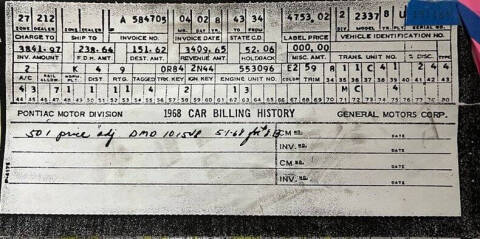 27 212 A 584705 04 02 8 43 34 4753.02 2 2337 8 U
ZONE DEALER ZONE DEALER MO. DAY YR. FROM TO DIV. MODEL YR. PLT. SERIAL NO.
CHARGE TO SHIP TO INVOICE NO. INVOICE DATE STATE CD. LABEL PRICE VEHICLE IDENTIFICATION NO.
3841.97 238.64 151.62 3409.65 52.06 000.00
INV. AMOUNT F.D.H. AMT. DEST. AMT. REVENUE AMT. HOLDBACK MISC. AMTS. TRANS. UNIT NO. % DISC. TYPE
2 K 4 9 OR84 2N44 553096 E2 59 8 1 1 C 4 1 2 4 4
A/C RAIL DIST RTG. TAGGED TRK KEY IGN KEY ENGINE UNIT NO. COLOR TRIM 34 35 36 37 38 39 40 41 42 43
4 3 7 1 1 1 4 2 1 3 M C 4
44 45 46 47 48 49 50 51 52 53 54 55 56 57 58 59 60 61 62 63 64 65 66 67 68 69 70 71 72 73 74 75 76 77 78 79 80
PONTIAC MOTOR DIVISION 1968 CAR BILLING HISTORY GENERAL MOTORS CORP.
501 price adj DMD 1015 51.68 CM NO. DATE
INV. NO. DATE
CM NO. DATE
INV. NO. DATE